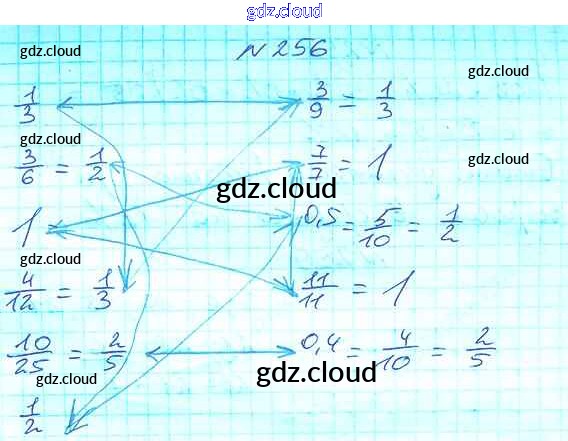 gdz.cloud
gdz.cloud № 256
1/3 3/9 = 1/3 gdz.cloud
gdz.cloud
3/6 = 1/2 7/7 = 1 gdz.cloud
gdz.cloud
1 0,5 = 5/10 = 1/2
gdz.cloud
4/12 = 1/3 11/11 = 1
10/25 = 2/5 0,4 = 4/10 = 2/5
gdz.cloud gdz.cloud
1/2